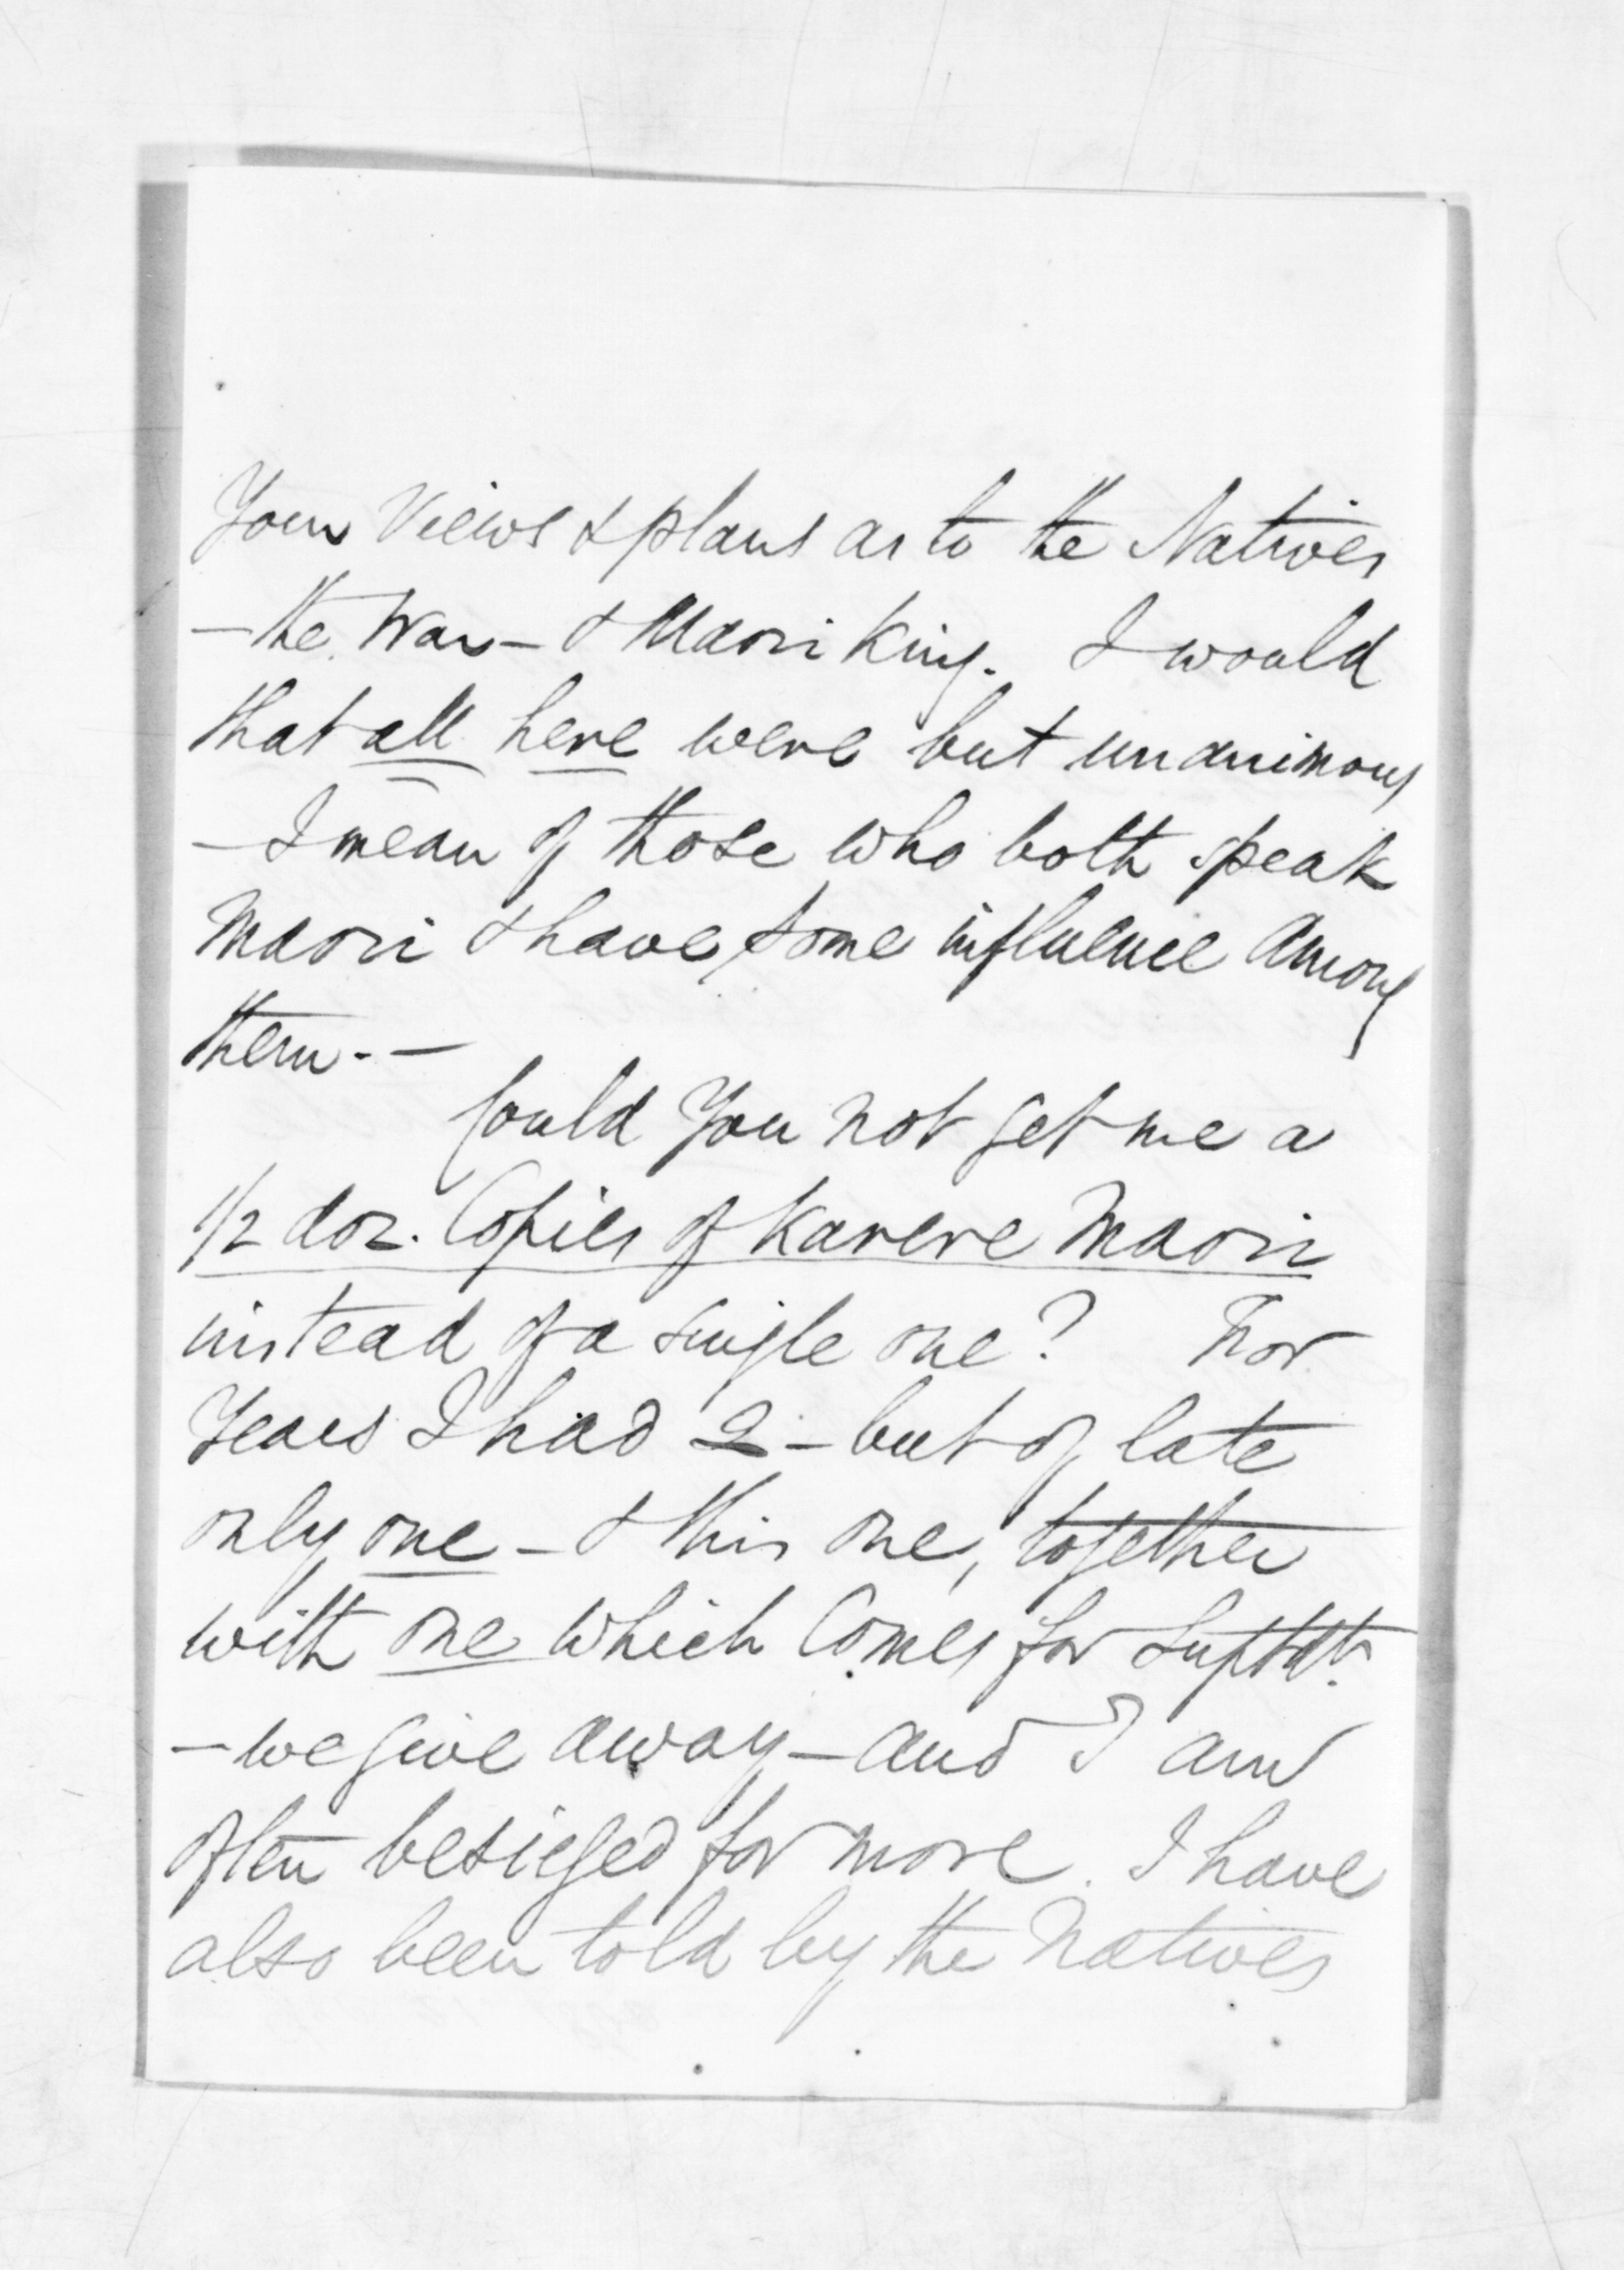 Your Views & plans as to the Natives
– the War – & Maori King. I would
that all here were but unanimous
– I mean of those who both speak
Maori & have some influence among
them. –
Could You not get me a
1/2 doz. Copies of Karere Maori
instead of a single one? For
Years I had 2 – but of late
only one – & this one, together
with one which Comes for Suptdt.
– we give away – and I am
often besieged for more. I have
also been told by the Natives